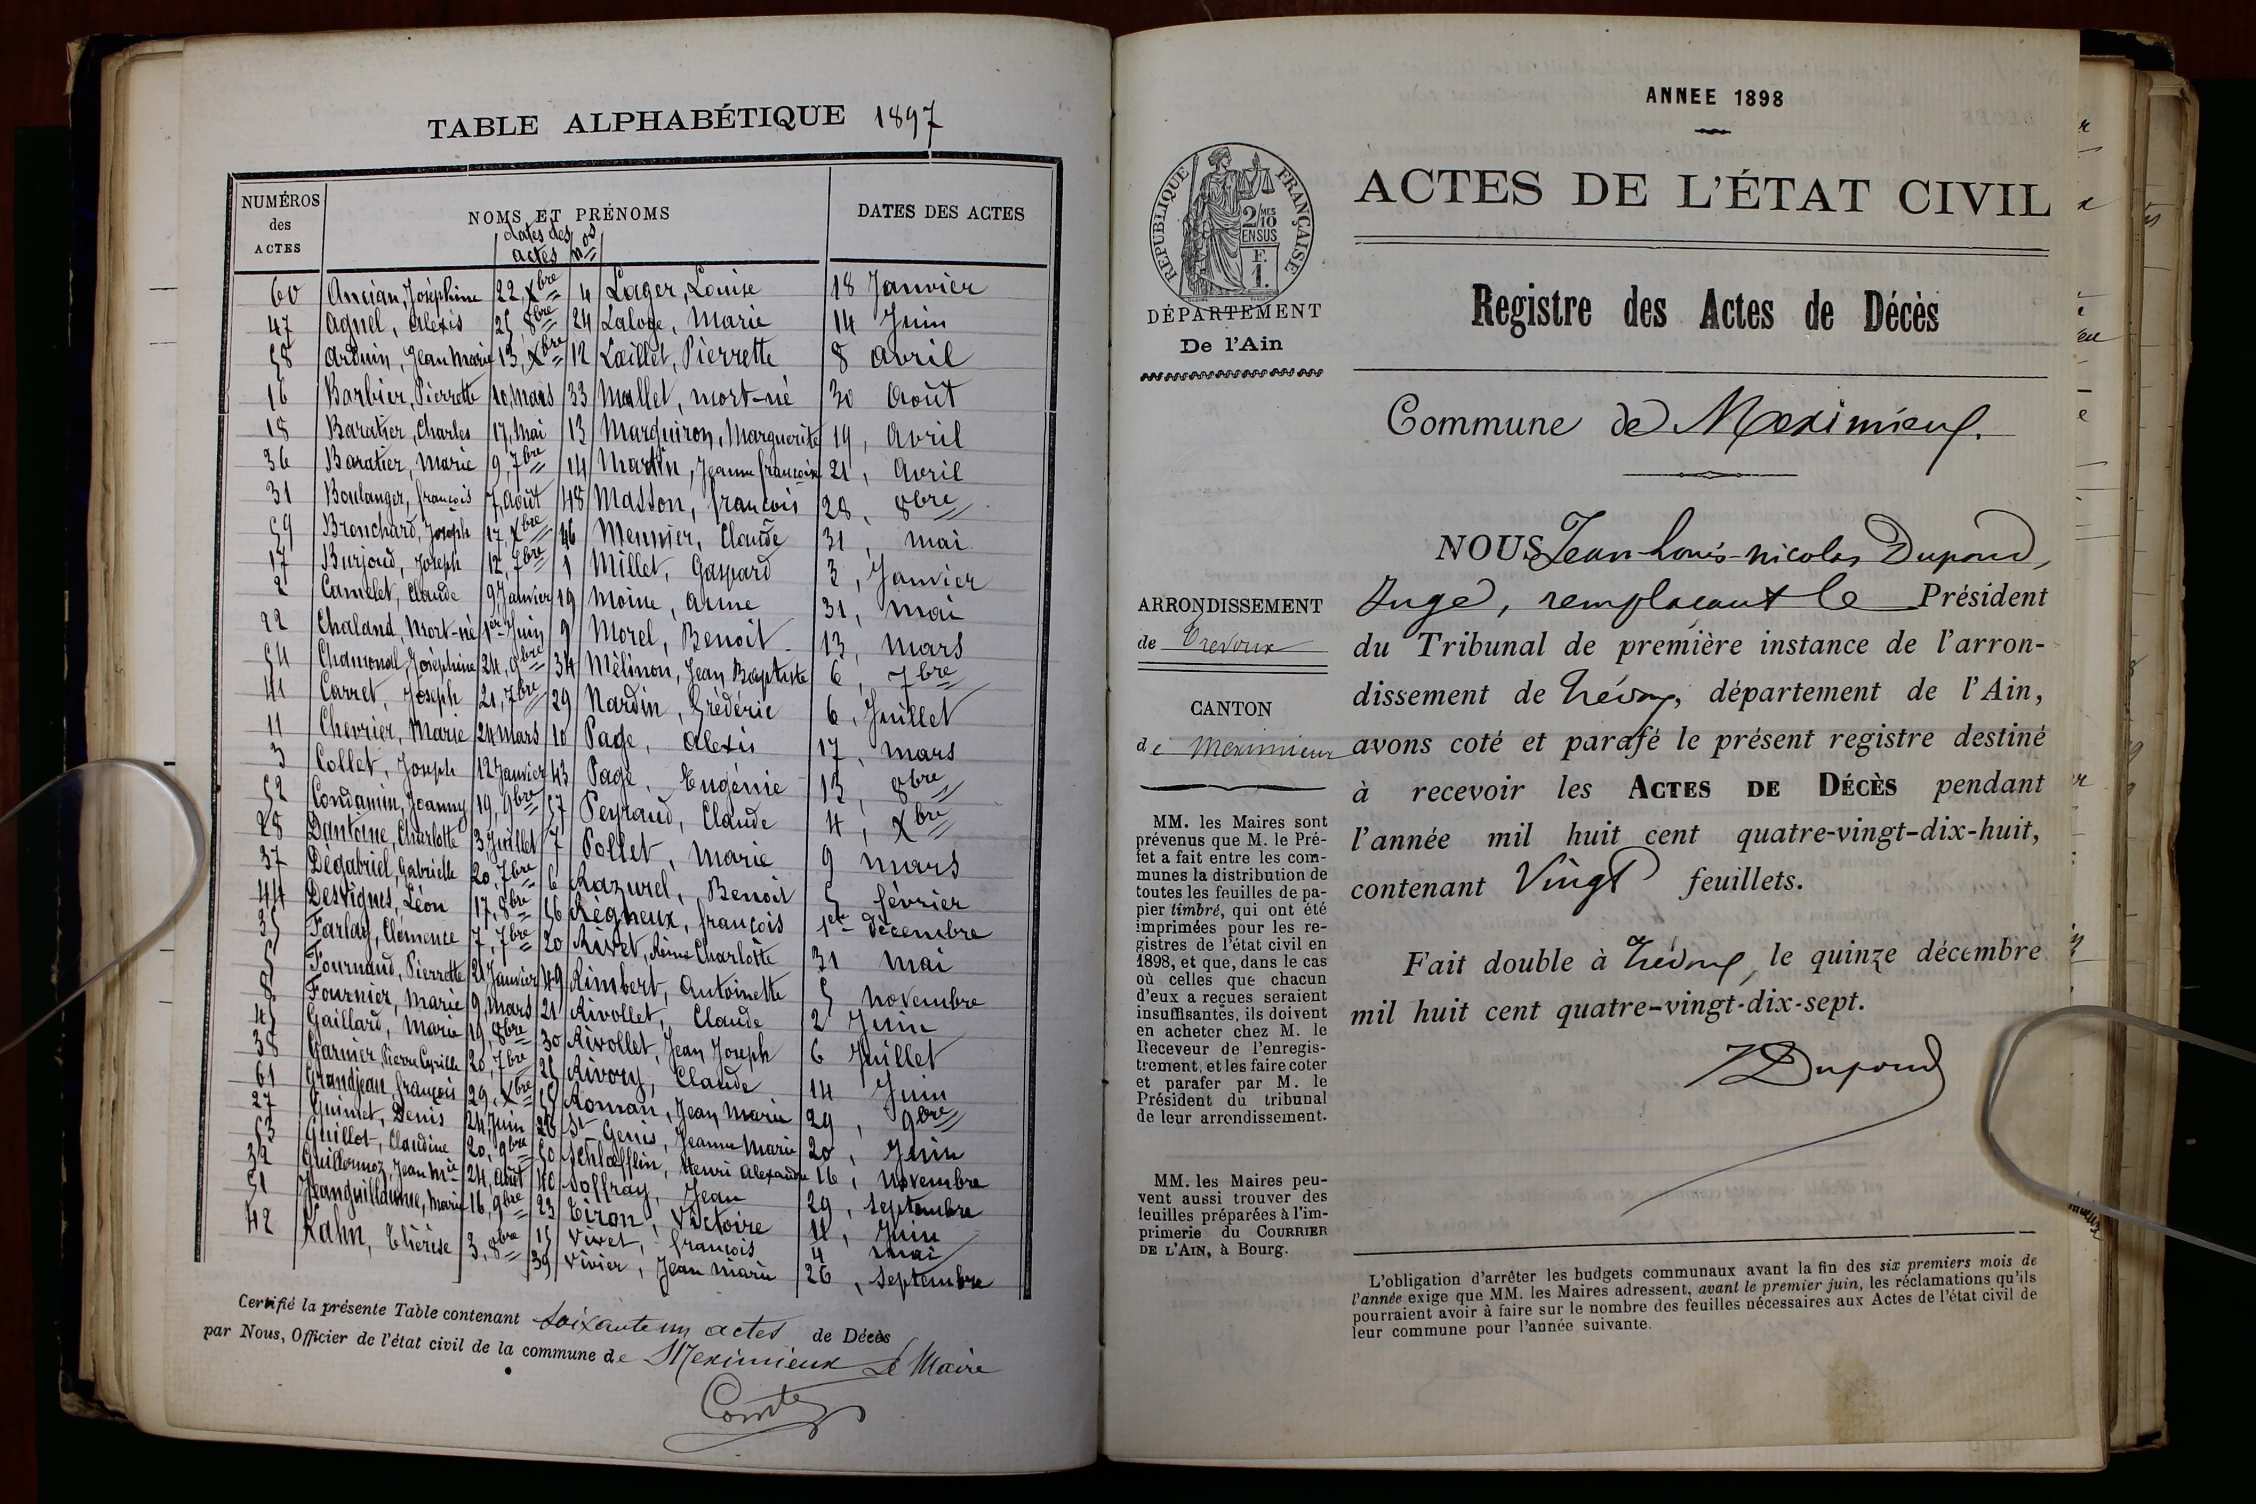 TABLE ALPHABÉTIQUE 1897
NUMÉROS des ACTES
NOMS ET PRÉNOMS
dates des actes
nos
DATES DES ACTES
60 Ancian, Joséphine 22, Xbre 4 Lager, Louise 18 Janvier
47 Agnel, Alexis 25, 8bre 24 Laloge, Marie 14 Juin
58 Arduin, Jean Marie 13, Xbre 12 Lœillet, Pierrette 8 Avril
16 Barbier, Pierrette 10, Mars 33 Mallet, mort-né 30 Août
18 Baratier, Charles 17, Mai 13 Marguiron, Marguerite 19, Avril
36 Baratier, Marie 9, 7bre 14 Martin, Jeanne françoise 21, Avril
31 Boulanger, françois 7, Août 48 Masson, françois 28, 8bre
59 Bronchard, Joseph 17, Xbre 46 Meunier, Claude 31, mai
17 Burjoud, Joseph 12, 7bre 1 Millet, Gaspard 3, Janvier
2 Camelet, Claude 9, Janvier 19 Moine, Anne 31, mai
22 Chaland, Mort-né 1er Juin 9 Morel, Benoit 13, mars
54 Chamonal, Joséphine 24, 9bre 34 Mélinon, Jean Baptiste 6, 7bre
41 Carret, Joseph 21, 7bre 29 Nardin, Frédéric 6, Juillet
11 Chevrier, Marie 24 mars 10 Page, Alexis 17, mars
3 Collet, Joseph 12 Janvier 43 Page, Eugénie 13, 8bre
52 Condamin, Joanny 19, 9bre 57 Peyraud, Claude 4, Xbre
28 Dantoine, Charlotte 3, Juillet 7 Pollet, Marie 9 mars
37 Dégabriel, Gabrielle 20, 7bre 6 Razurel, Benoit 5 février
44 Desvignes, Léon 17, 8bre 56 Régneux, françois 1er décembre
35 Farlay, Clémence 7, 7bre 20 Rivet, Reine Charlotte 31 mai
5 Fournand, Pierrette 21 Janvier 49 Rimbert, Antoinette 5 novembre
8 Fournier, Marie 9, Mars 21 Rivollet, Claude 2 Juin
45 Gaillard, Marie 19, 8bre 30 Rivollet, Jean Joseph 6 Juillet
38 Garnier, Pierre Cyrille 20, 7bre 25 Rivory, Claude 14 Juin
61 Grandjean, françois 29, Xbre 55 Roman, Jean Marie 29, 9bre
27 Guinet, Denis 24, Juin 26 St Genis, Jeanne Marie 20, Juin
53 Guillot, Claudine 20, 9bre 50 Schlœfflin, Henri Alexandre 16, novembre
32 Guillermoz, Jean Mie 24, Août 40 Soffray, Jean 29, septembre
51 Jeanguillaume, Marie 16, 9bre 23 Tiron, Victoire 11, Juin
42 Kahn, Thérèse 3, 8bre 15 Vivet, françois 4 mai
39 Vivier, Jean Marie 26, septembre
Certifié la présente Table contenant soixante un actes de Décès
par Nous, Officier de l'état civil de la commune de Meximieux Le Maire
Comte
ANNEE 1898
RÉPUBLIQUE FRANÇAISE
2/10 MES
EN SUS
F.
1.
DÉPARTEMENT
De l'Ain
ACTES DE L'ÉTAT CIVIL
Registre des Actes de Décès
Commune de Meximieux.
NOUS Jean-Louis-Nicolas Dupond,
Juge, remplaçant le Président
du Tribunal de première instance de l'arron-
dissement de Trévoux, département de l'Ain,
avons coté et parafé le présent registre destiné
à recevoir les ACTES DE DÉCÈS pendant
l'année mil huit cent quatre-vingt-dix-huit,
contenant Vingt feuillets.
Fait double à Trévoux, le quinze décembre
mil huit cent quatre-vingt-dix-sept.
Dupond
ARRONDISSEMENT
de Trévoux
CANTON
de Meximieux
MM. les Maires sont
prévenus que M. le Pré-
fet a fait entre les com-
munes la distribution de
toutes les feuilles de pa-
pier timbré, qui ont été
imprimées pour les re-
gistres de l'état civil en
1898, et que, dans le cas
où celles que chacun
d'eux a reçues seraient
insuffisantes, ils doivent
en acheter chez M. le
Receveur de l'enregis-
trement, et les faire coter
et parafer par M. le
Président du tribunal
de leur arrondissement.
MM. les Maires peu-
vent aussi trouver des
feuilles préparées à l'im-
primerie du COURRIER
DE L'AIN, à Bourg.
L'obligation d'arrêter les budgets communaux avant la fin des six premiers mois de
l'année exige que MM. les Maires adressent, avant le premier juin, les réclamations qu'ils
pourraient avoir à faire sur le nombre des feuilles nécessaires aux Actes de l'état civil de
leur commune pour l'année suivante.